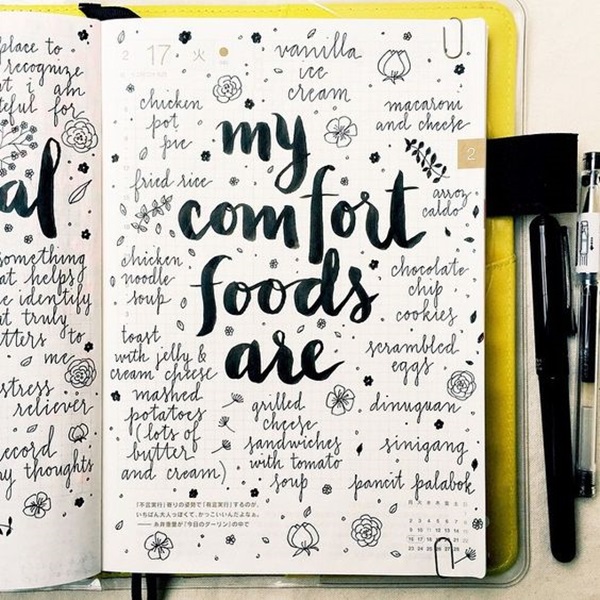 place to
recognize
at i am
teful for
al
something
at helps
e identify
t truly
tters to
me
stress
reliever
ecord
y thoughts
2
17
火
vanilla
ice
cream
chicken
pot
pie
macaroni
and cheese
my
2
fried rice
arroz
caldo
comfort
chicken
noodle
soup
foods
chocolate
chip
cookies
toast
with jelly &
cream cheese
are
scrambled
eggs
mashed
potatoes
(lots of
butter
and cream)
grilled
cheese
sandwiches
with tomato
soup
dinuguan
sinigang
pancit palabok
「不言実行」寄りの姿勢で「有言実行」するのが、
いちばん大人っぽくて、かっこいいんだよなぁ。
── 糸井重里が『今日のダーリン』の中で